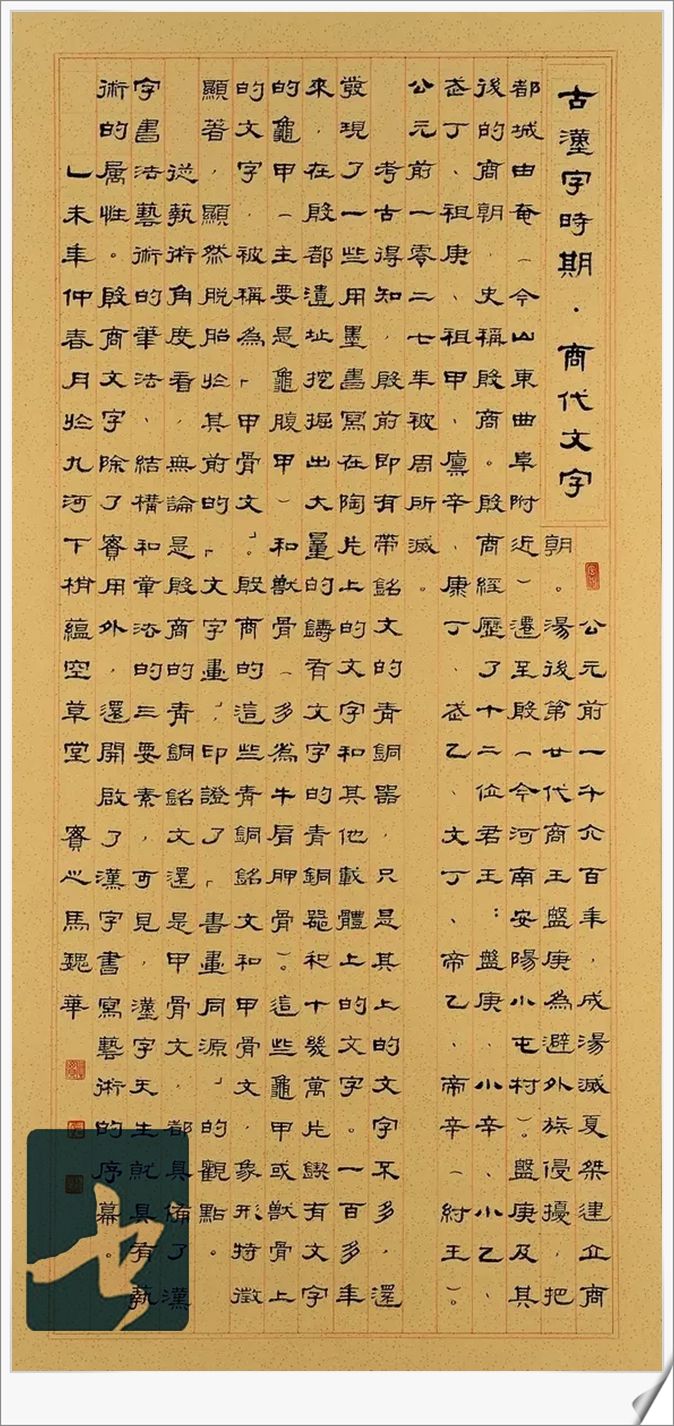 古漢字時期·商代文字
公元前一千六百年，成湯滅夏桀建立商
朝。湯後第廿代商王盤庚為避外族侵擾，把
都城由奄（今山東曲阜附近）遷至殷（今河南安陽小屯村）。盤庚及其
後的商朝，史稱殷商。殷商經歷了十二位君王：盤庚、小辛、小乙、
武丁、祖庚、祖甲、廩辛、康丁、武乙、文丁、帝乙、帝辛（紂王）。
公元前一零二七年被周所滅。
考古得知，殷前即有帶銘文的青銅器，只是其上的文字不多，還
發現了一些用墨書寫在陶片上的文字和其他載體上的文字。一百多年
來，在殷都遺址挖掘出大量的鑄有文字的青銅器和十幾萬片鍥有文字
的龜甲（主要是龜腹甲）和獸骨（多為牛肩胛骨）。這些龜甲或獸骨上
的文字，被稱為「甲骨文」。殷商的這些青銅銘文和甲骨文，象形特徵
顯著，顯然脫胎於其前的「文字畫」，印證了「書畫同源」的觀點。
從藝術角度看，無論是殷商的青銅銘文還是甲骨文，都具備了漢
字書法藝術的筆法、結構和章法的三要素，可見，漢字天生就具有藝
術的属性。殷商文字除了實用外，還開啟了漢字書寫藝術的序幕。
乙未年仲春月於九河下梢蘊空草堂 心馬魏華
书